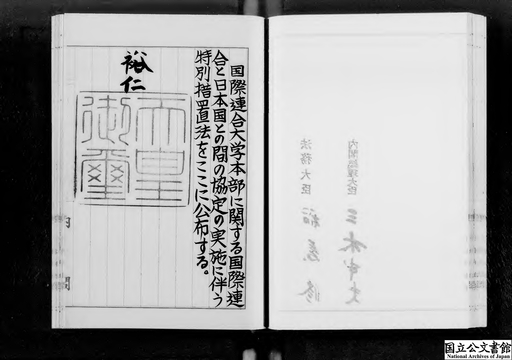 国際連合大学本部に関する国際連
合と日本国との間の協定の実施に伴う
特別措置法をここに公布する。
裕仁
天皇
御璽
内閣
内閣総理大臣 三木武夫
法務大臣 稻葉修
国立公文書館
National Archives of Japan